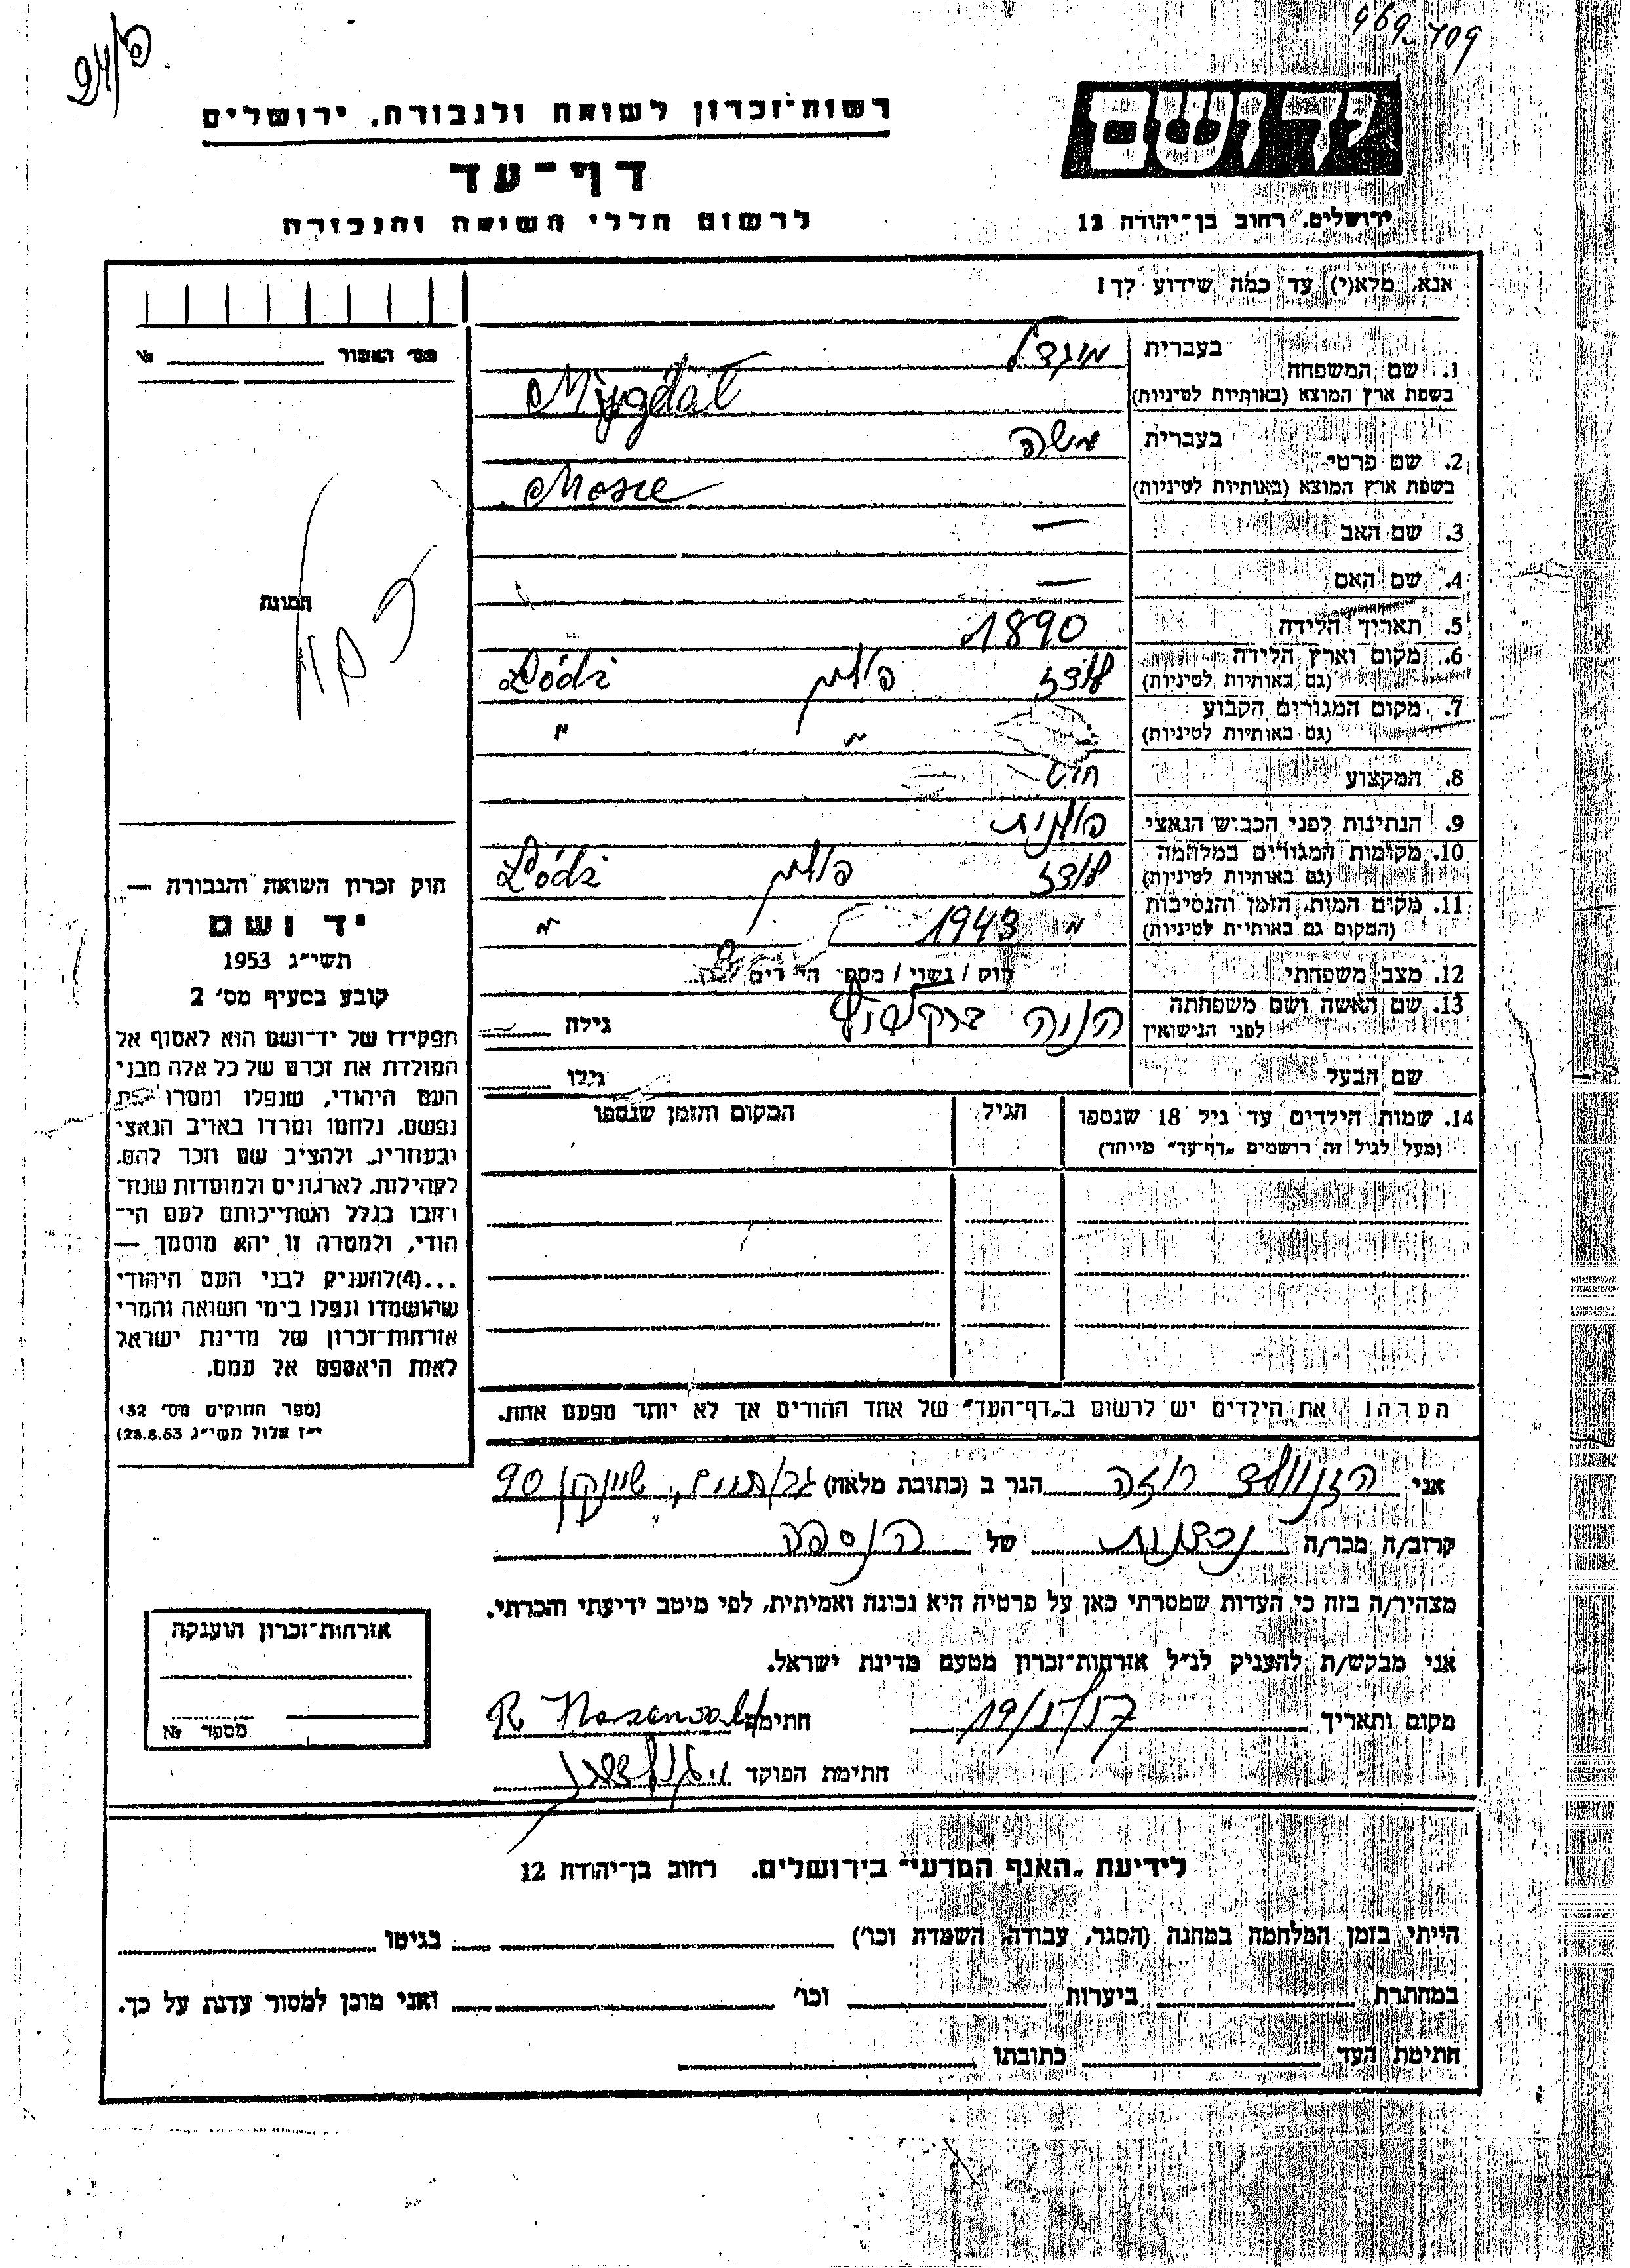 469-709
יד ושם
רשות־זכרון לשואה ולגבורה, ירושלים
דף־עד
לרשום חללי השואה והגבורה
ירושלים, רחוב בן־יהודה 12
אנא, מלא(י) עד כמה שידוע לך!
מס' האשור № 
1. שם המשפחה בעברית מיגדל
בשפת ארץ המוצא (באותיות לטיניות) Migdal
2. שם פרטי בעברית משה
בשפת ארץ המוצא (באותיות לטיניות) Mosze
3. שם האב —
4. שם האם —
5. תאריך הלידה 1890
6. מקום וארץ הלידה (גם באותיות לטיניות) לודז פולין Łódź
7. מקום המגורים הקבוע (גם באותיות לטיניות) " "
8. המקצוע חיט
9. הנתינות לפני הכבוש הנאצי פולנית
10. מקומות המגורים במלחמה (גם באותיות לטיניות) לודז פולין Łódź
11. מקום המות, הזמן והנסיבות (המקום גם באותיות לטיניות) " 1943 "
12. מצב משפחתי רוק / נשוי / מספר הילדים
13. שם האשה ושם משפחתה לפני הנישואין חנה גילה
שם הבעל גילו
14. שמות הילדים עד גיל 18 שנספו הגיל המקום והזמן שנספו
(מעל לגיל זה רושמים „דף־עד" מיוחד)
הערה! את הילדים יש לרשום ב„דף־העד" של אחד ההורים אך לא יותר מפעם אחת.
תמונה
חוק זכרון השואה והגבורה —
יד ושם
תשי"ג 1953
קובע בסעיף מס' 2
תפקידו של יד־ושם הוא לאסוף אל
המולדת את זכרם של כל אלה מבני
העם היהודי, שנפלו ומסרו את
נפשם, נלחמו ומרדו באויב הנאצי
ובעוזריו, ולהציב שם וזכר להם,
לקהילות, לארגונים ולמוסדות שנח־
רבו בגלל השתייכותם לעם הי־
הודי, ולמטרה זו יהא מוסמך —
...(4)להעניק לבני העם היהודי
שהושמדו ונפלו בימי השואה והמרי
אזרחות־זכרון של מדינת ישראל
לאות היאספם אל עמם.
(ספר החוקים מס' 132
י"ז אלול תשי"ג 28.8.53)
אני רוזנוולד רוזה הגר ב (כתובת מלאה) גבעתיים, שיינקין 90
קרוב/ה מכר/ה של הנספה
מצהיר/ה בזה כי העדות שמסרתי כאן על פרטיה היא נכונה ואמיתית, לפי מיטב ידיעתי והכרתי.
אני מבקש/ת להעניק לנ"ל אזרחות־זכרון מטעם מדינת ישראל.
מקום ותאריך חתימה R Rozenwald
חתימת הפוקד
אזרחות־זכרון הוענקה
מספר №
לידיעת „האגף המדעי" בירושלים. רחוב בן־יהודה 12
הייתי בזמן המלחמה במחנה (הסגר, עבודה, השמדה וכו') בגיטו
במחתרת ביערות וכו' ואני מוכן למסור עדות על כך.
חתימת העד כתובתו